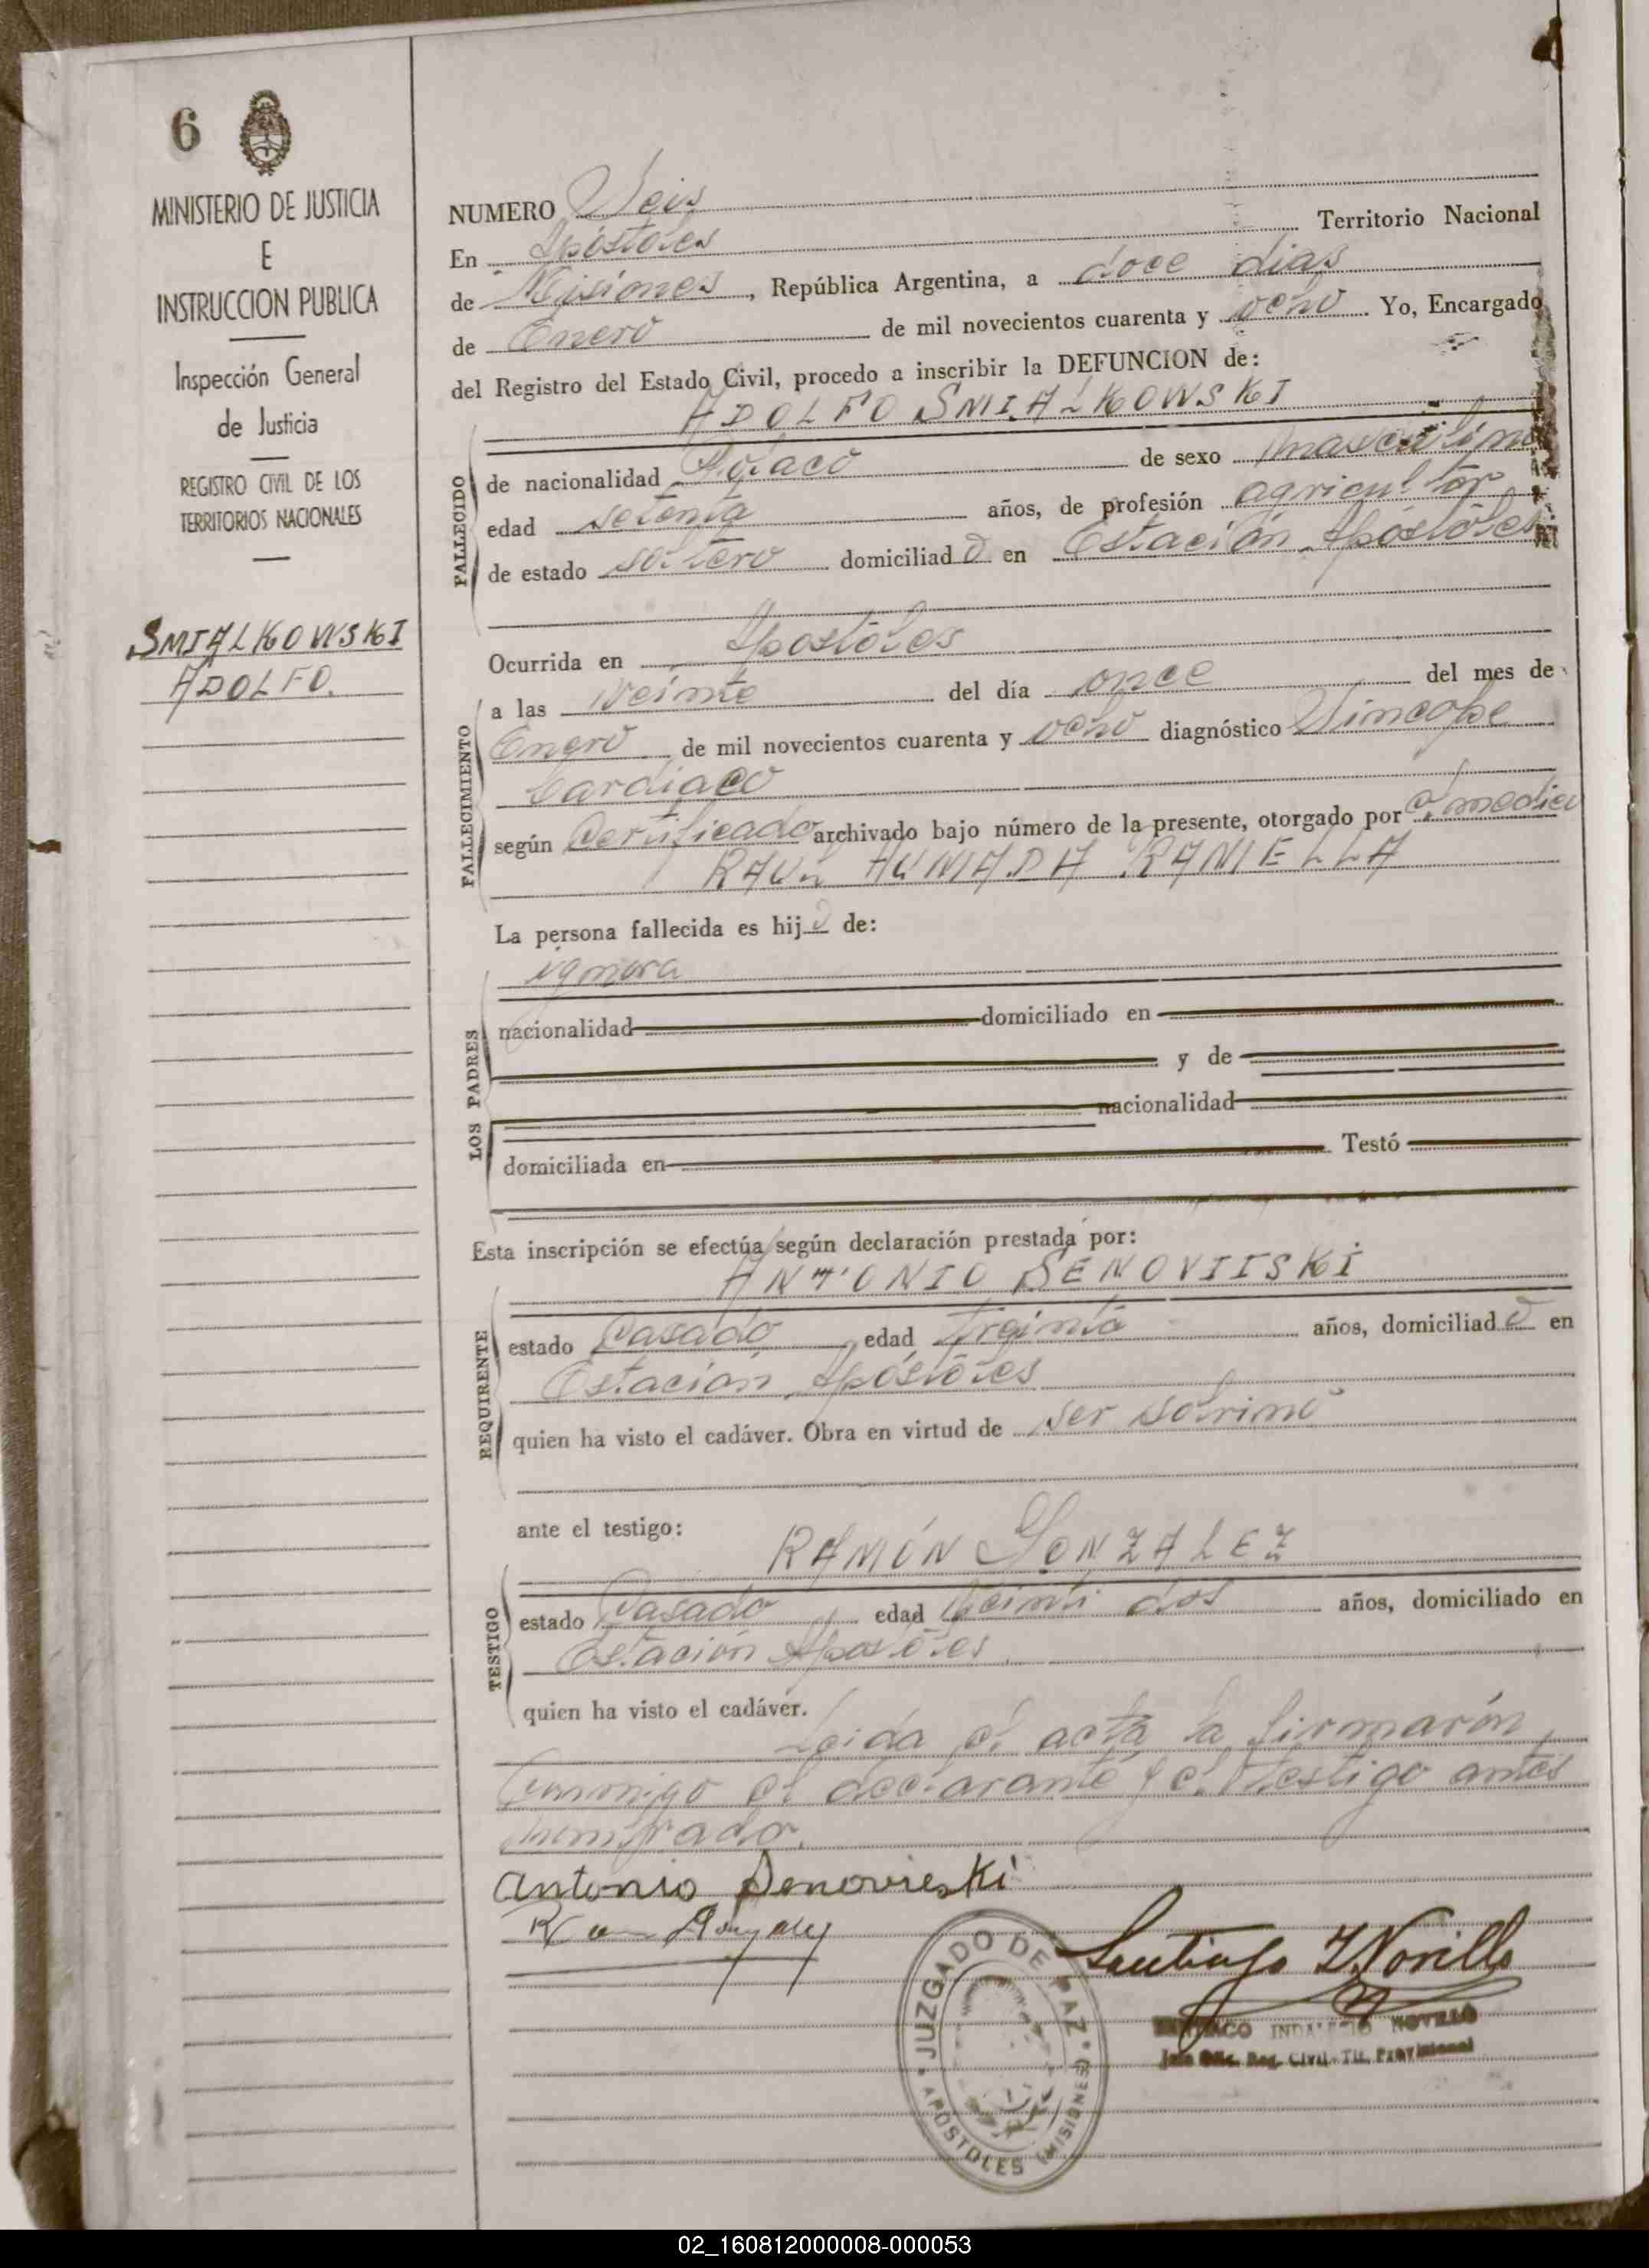 6
MINISTERIO DE JUSTICIA
E
INSTRUCCION PUBLICA
Inspección General
de Justicia
REGISTRO CIVIL DE LOS
TERRITORIOS NACIONALES
SMIALKOWSKI
ADOLFO.
NUMERO Seis
En Apóstoles Territorio Nacional
de Misiones, República Argentina, a doce dias
de Enero de mil novecientos cuarenta y ocho Yo, Encargado
del Registro del Estado Civil, procedo a inscribir la DEFUNCION de:
ADOLFO SMIALKOWSKI
FALLECIDO
de nacionalidad Polaco de sexo masculino
edad setenta años, de profesión agricultor
de estado soltero domiciliado en Estación Apóstoles
FALLECIMIENTO
Ocurrida en Apostóles
a las veinte del día once del mes de
Enero de mil novecientos cuarenta y ocho diagnóstico Síncope
Cardiaco
según Certificado archivado bajo número de la presente, otorgado por el medico
RAUL RANIELLA
LOS PADRES
La persona fallecida es hijo de:
ignora
nacionalidad domiciliado en
y de
nacionalidad
domiciliada en Testó
Esta inscripción se efectúa según declaración prestada por:
ANTONIO SENOVIISKI
REQUIRENTE
estado Casado edad treinta años, domiciliado en
Estación Apóstoles
quien ha visto el cadáver. Obra en virtud de ser sobrino
ante el testigo:
RAMÓN GONZALEZ
TESTIGO
estado Casado edad Veinti dos años, domiciliado en
Estación Apostóles.
quien ha visto el cadáver.
Leida el acta la firmarón
conmigo el declarante y el testigo antes
nombrado.
Antonio Senovieski
Santiago I Novillo
JUZGADO DE PAZ
APOSTOLES (MISIONES)
SANTIAGO INDALECIO NOVILLO
Jefe Ofic. Reg. Civil Tit. Provisional
02_160812000008-000053